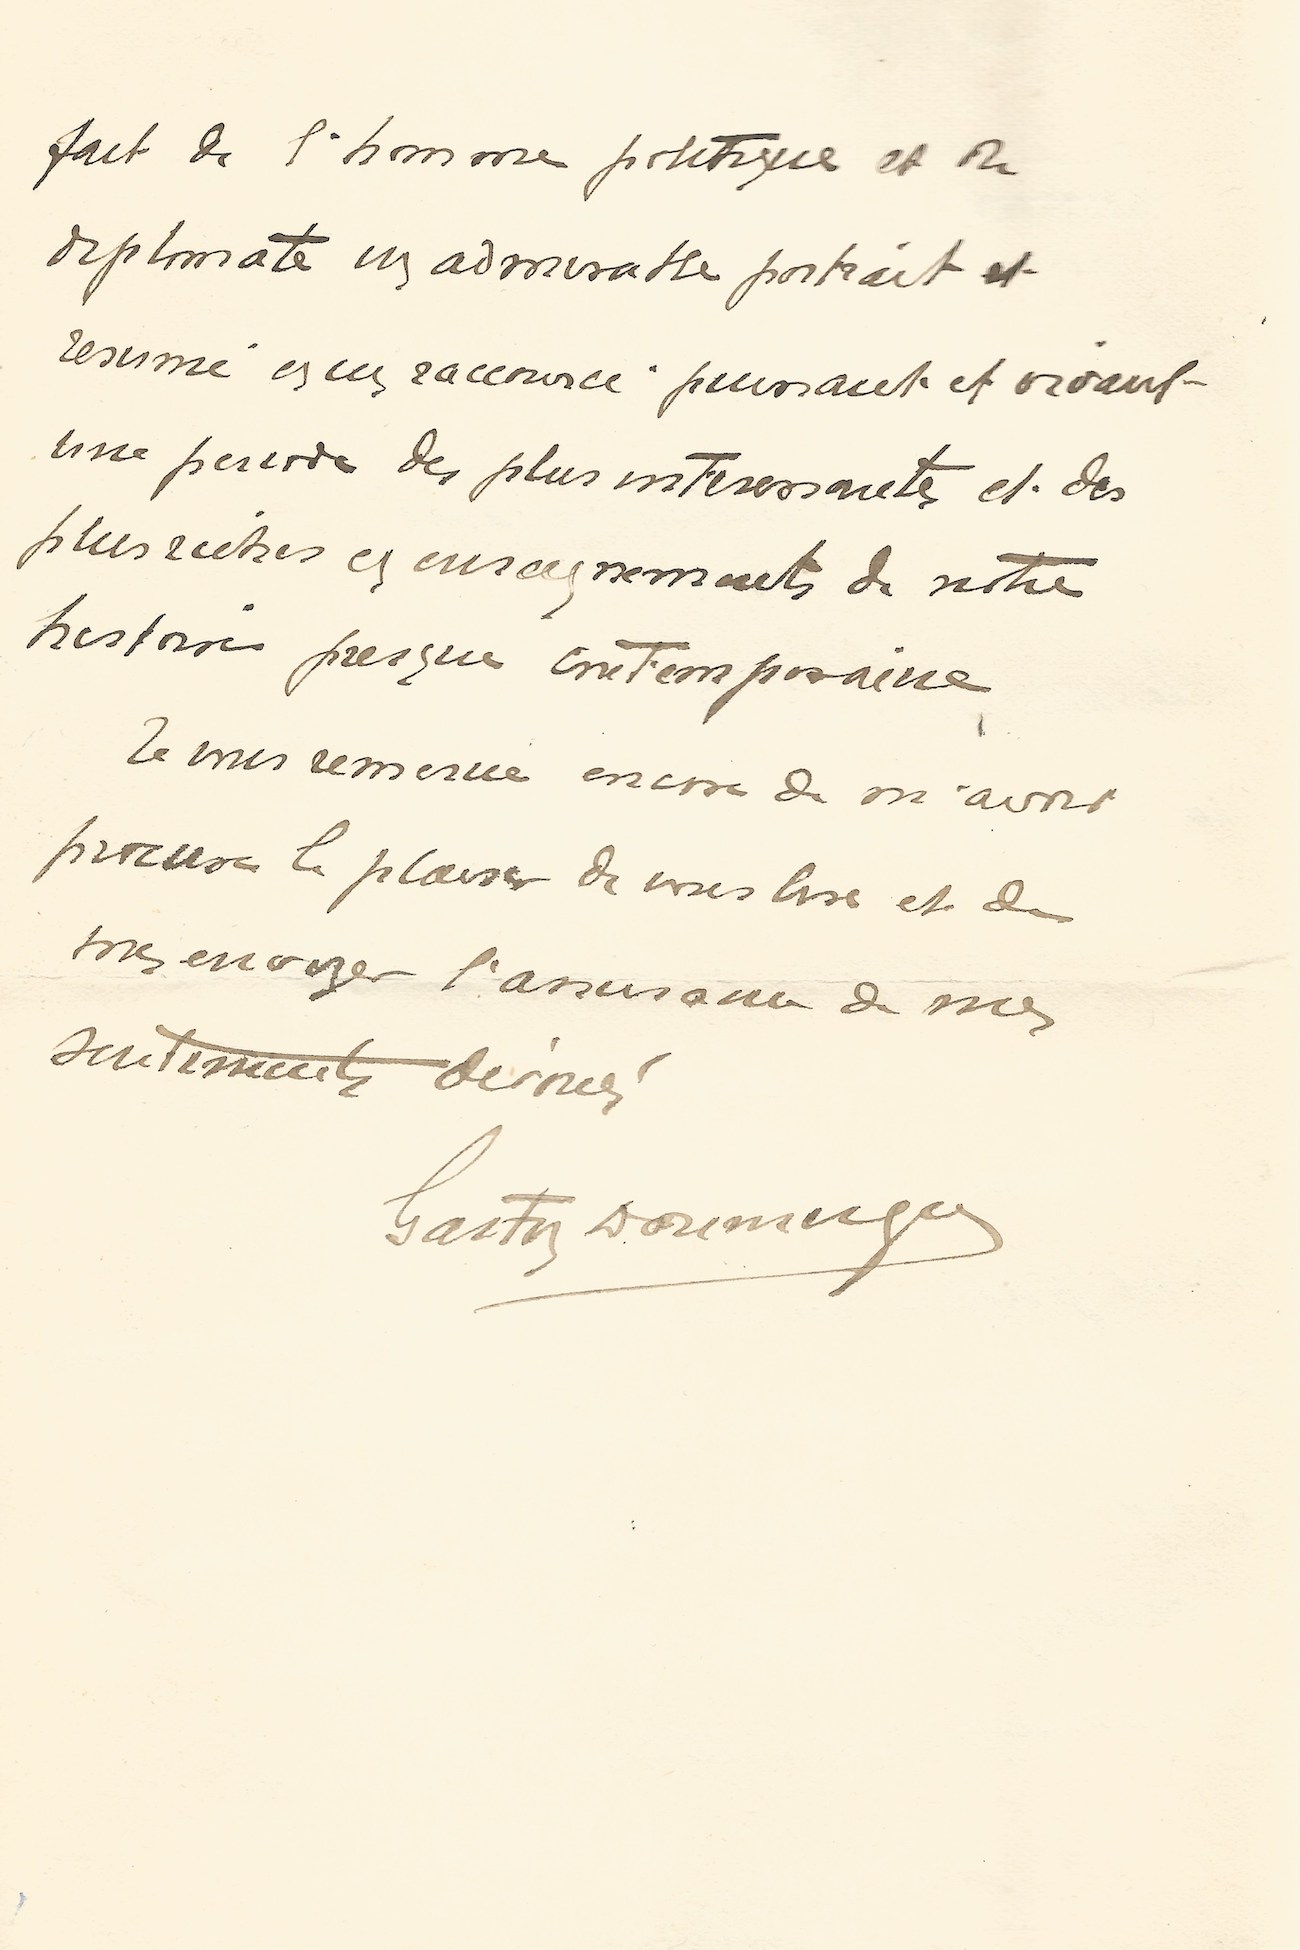 fait de l'homme politique et du
diplomate un admirable portrait et
résumé en un raccourci puissant et vivant
une periode des plus interessantes et des
plus riches en enseignements de notre
histoire presque contemporaine
Je vous remercie encore de m'avoir
procuré le plaisir de vous lire et de
vous envoyer l'assurance de mes
sentiments dévoués
Gaston Doumergue